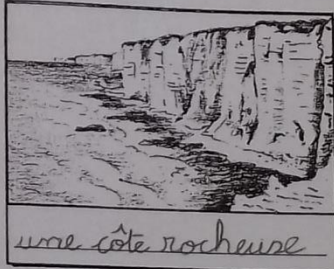 une côte rocheuse